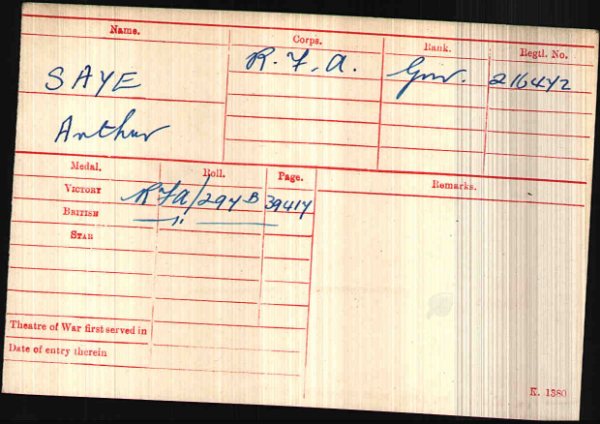 Name. Corps. Rank. Regtl. No.
SAYE R.F.A. Gnr. 216442
Arthur
Medal. Roll. Page. Remarks.
VICTORY RFA/294 B 39414
BRITISH —"—
STAR
Theatre of War first served in
Date of entry therein
K. 1380